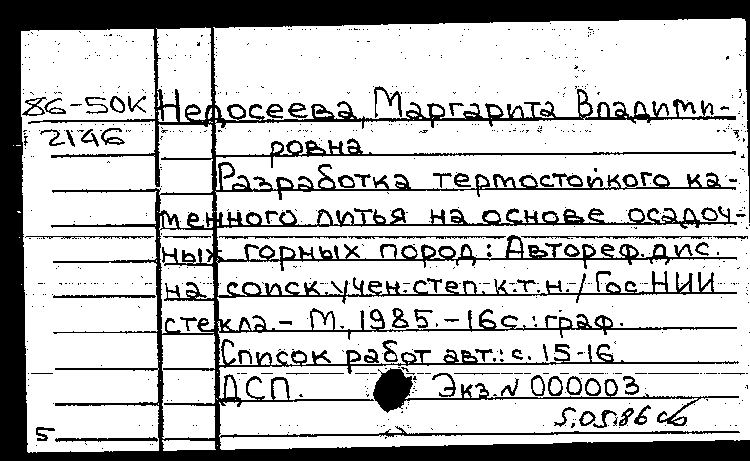 86-50К Недосеева, Маргарита Владими-
2146 ровна.
Разработка термостойкого ка-
менного литья на основе осадоч-
ных горных пород: Автореф. дис.
на соиск. учен. степ. к.т.н. / Гос. НИИ
стекла. - М., 1985. - 16 с.: граф.
Список работ авт.: с. 15-16.
ДСП. Экз. N 000003.
5.05.86
5